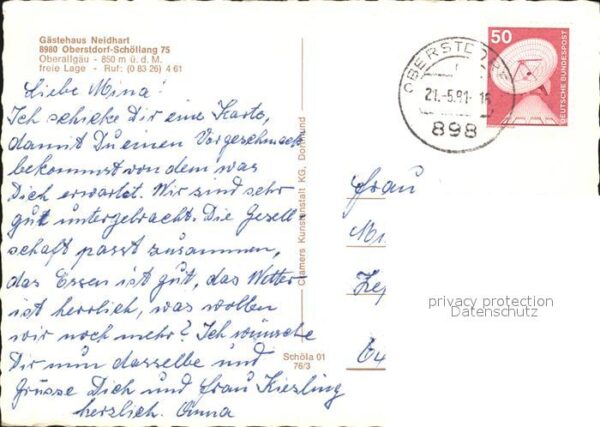 Gästehaus Neidhart
8980 Oberstdorf-Schöllang 75
Oberallgäu - 850 m ü. d. M.
freie Lage - Ruf: (0 83 26) 4 61
Liebe Mina!
Ich schicke Dir eine Karte,
damit Du einen Vorgeschmack
bekommst von dem was
Dich erwartet. Wir sind sehr
gut untergebracht. Die Gesell
schaft passt zusammen,
das Essen ist gut, das Wetter
ist herrlich, was wollen
wir noch mehr? Ich wünsche
Dir nun dasselbe und
Grüsse Dich und Frau Kiesling
herzlich. Anna
Cramers Kunstanstalt KG, Dortmund
Schöla 01
76/3
50
DEUTSCHE BUNDESPOST
OBERSTDORF
21.-5.81.-16
898
Frau
Mi
privacy protection
Datenschutz